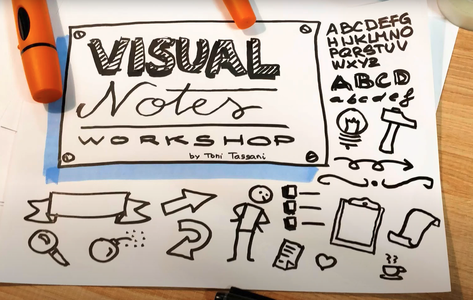 VISUAL
Notes
WORKSHOP
by Toni Tassani
ABCDEFG
HIJKLMNO
PQRSTUV
WXYZ
ABCD
abcdef